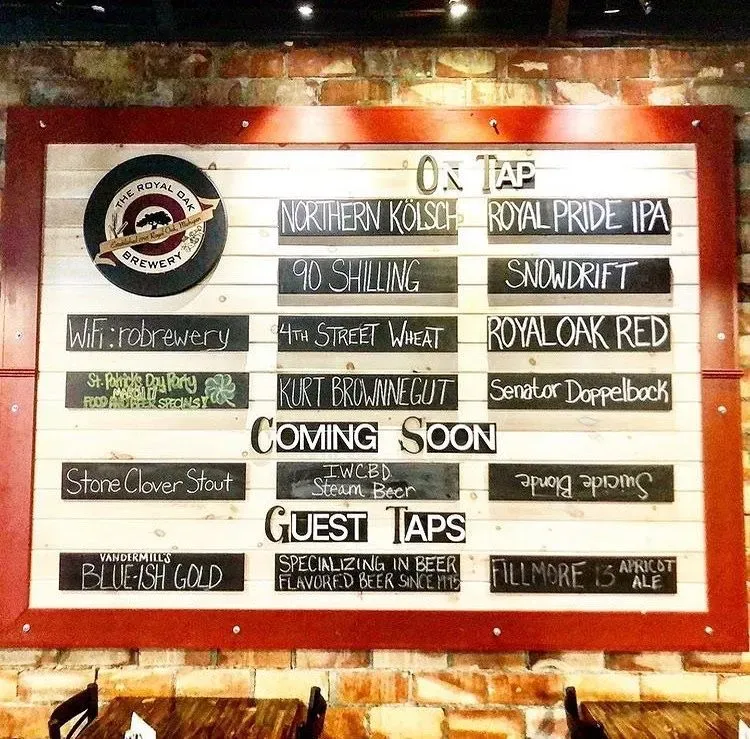 THE ROYAL OAK
BREWERY
ON TAP
NORTHERN KÖLSCH
ROYAL PRIDE IPA
90 SHILLING
SNOWDRIFT
WiFi: robrewery
4TH STREET WHEAT
ROYAL OAK RED
St. Patrick's Day Party
MARCH 17
FOOD AND BEER SPECIALS!
KURT BROWNNEGUT
Senator Doppelbock
COMING SOON
Stone Clover Stout
IWCBD
Steam Beer
Suicide Blonde
GUEST TAPS
VANDERMILL'S
BLUE-ISH GOLD
SPECIALIZING IN BEER
FLAVORED BEER SINCE 1995
FILLMORE 13 APRICOT
ALE